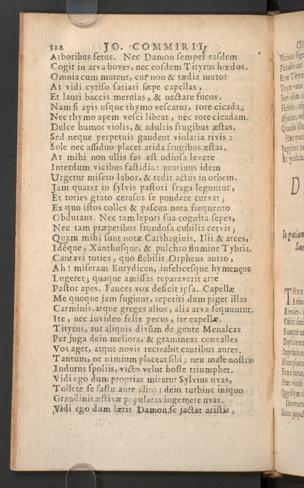 122 JO. COMMIRII,
Arboribus fetus. Nec Damon semper easdem
Cogit in arva boves, nec eosdem Tityrus hœdos.
Omnia cum mutent, cur non & tædia muto?
At vidi cytiso satiari sæpe capellas,
Et lauri baccis merulas, & nectare fucos.
Nam si apis usque thymo vescatur, rore cicada;
Nec thymo apem vesci libeat, nec rore cicadam.
Dulce humor violis, & adultis frugibus æstas.
Sed neque perpetuis gaudent violaria rivis:
Sole nec assiduo placet arida frugibus æstas.
At mihi non ullis fas est odiosa levare
Interdum vicibus fastidia: protinus idem
Urgetur misero labor, & redit actus in orbem.
Jam quater in sylvis pastori fraga leguntur,
Et toties grato cerasus se pondere curvat;
Ex quo istos colles & pascua nota frequento
Obdurans. Nec tam lepori sua cognita sepes,
Nec tam præpetibus frondosa cubilia cervis;
Quam mihi sunt notæ Carthaginis, Ilii & arces,
Idéque, Xanthusque, & pulchro flumine Tybris.
Cantavi toties, quo flebilis Orpheus autro,
Ah! miseram Eurydicen, infelicesque hymenæos
Lugeret; quaque amissas repararit arte
Pastor apes. Fauces vox deficit ipsa. Capellæ
Me quoque jam fugiunt, repetiti dum piget illas
Carminis, atque greges alios, alia arva sequuntur.
Ite, nec invideo felix pecus, ite capellæ.
Tityrus, aut aliquis divûm de gente Menalcas
Per juga dein meliora, & gramineas convalles
Vos aget, atque novis recreabit cantibus aures.
Tantum, ne nimium placeat sibi, neu male nostris
Indutus spoliis, victo velut hoste triumphet.
Vidi ego dum proprias miratur Sylvius uvas,
Tollere se fastu ante alios: dein turbine iniquo
Grandinis æstivæ populatas ingemere uvas.
Vidi ego dum lætis Damon se jactat aristis,